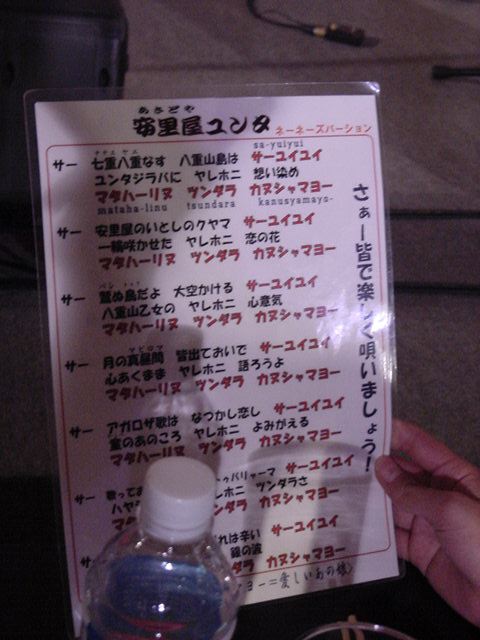 あさどや
安里屋ユンタ ネーネーズバージョン
sa-yuiyui
サー 七重八重なす 八重山島は サーユイユイ
ユンタジラバに ヤレホニ 想い染め
マタハーリヌ ツンダラ カヌシャマヨー
mataha-linu tsundara kanusyamayo-
サー 安里屋のいとしのクヤマ サーユイユイ
一輪咲かせた ヤレホニ 恋の花
マタハーリヌ ツンダラ カヌシャマヨー
サー 鷲ぬ鳥だよ 大空かける サーユイユイ
八重山乙女の ヤレホニ 心意気
マタハーリヌ ツンダラ カヌシャマヨー
サー 月の真昼間 皆出ておいで サーユイユイ
心あくまま ヤレホニ 語ろうよ
マタハーリヌ ツンダラ カヌシャマヨー
サー アガロザ歌は なつかし恋し サーユイユイ
童のあのころ ヤレホニ よみがえる
マタハーリヌ ツンダラ カヌシャマヨー
サー 歌って バリャーマ サーユイユイ
ハヤ レホニ ツンダラさ
マタ ツンダラ カヌシャマヨー
サー れは辛い サーユイユイ
銀の波
ダラ カヌシャマヨー
マヨー=愛しいあの娘〉
さぁー皆で楽しく唄いましょう!